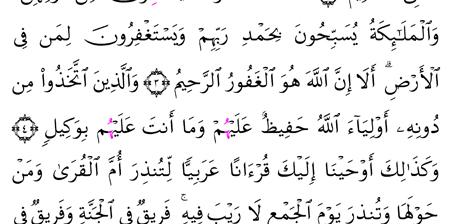 وَالْمَلَـٰٓئِكَةُ يُسَبِّحُونَ بِحَمْدِ رَبِّهِمْ وَيَسْتَغْفِرُونَ لِمَن فِي
الْأَرْضِ ۗ أَلَا إِنَّ اللَّهَ هُوَ الْغَفُورُ الرَّحِيمُ ۝٣ وَالَّذِينَ اتَّخَذُوا مِن
دُونِهِۦ أَوْلِيَاءَ اللَّهُ حَفِيظٌ عَلَيْهِمْ وَمَا أَنتَ عَلَيْهِم بِوَكِيلٍ ۝٤
وَكَذَٰلِكَ أَوْحَيْنَا إِلَيْكَ قُرْءَانًا عَرَبِيًّا لِّتُنذِرَ أُمَّ الْقُرَىٰ وَمَنْ
حَوْلَهَا وَتُنذِرَ يَوْمَ الْجَمْعِ لَا رَيْبَ فِيهِ ۚ فَرِيقٌ فِي الْجَنَّةِ وَفَرِيقٌ فِي